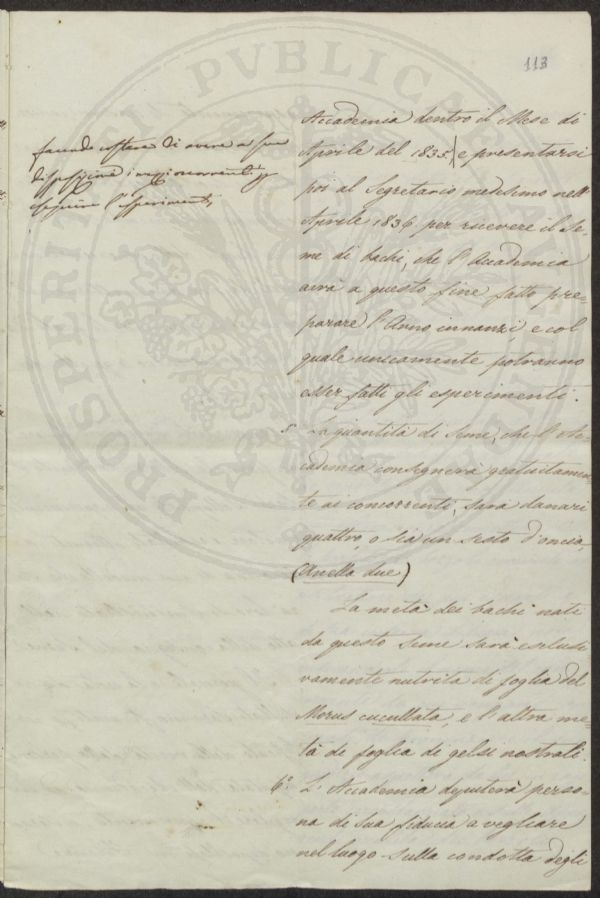 113
Accademia dentro il Mese di
Aprile del 1835, e presentarsi
poi al Segretario medesimo nell'
Aprile 1836 per ricevere il Se-
me di bachi, che l'Accademia
avrà a questo fine fatto pre-
parare l'Anno innanzi, e col
quale unicamente potranno
esser fatti gli esperimenti.
facendo constare di avere a sua
disposizione i mezzi occorrenti per
eseguire l'esperimento,
5° La quantità di Seme, che l'Ac-
cademia consegnerà gratuitamen-
te ai concorrenti, sarà danari
quattro, o sia un sesto d'oncia,
(Anella due)
La metà dei bachi nati
da questo seme sarà esclusi
vamente nutrita di foglia del
Morus cucullata, e l'altra me-
tà di foglia di gelsi nostrali.
6° L'Accademia deputerà perso-
na di sua fiducia a vegliare
nel luogo sulla condotta degli
PROSPERITATI PVBLICAE AVGENDAE